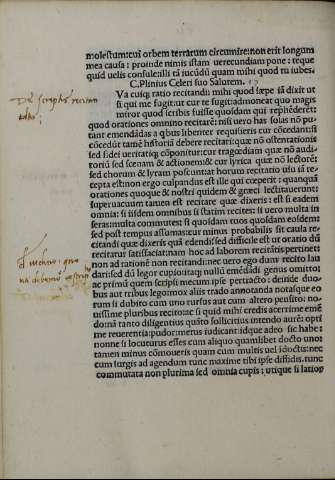 molestum: cui orbem terrarum circumire: non erit longum
mea causa: proinde nimis istam uerecundiam pone: teque
quid uelis consule: illi tā iucūdū quam mihi quod tu iubes.
C. Plinius Celeri suo Salutem.
Va cuiq; ratio recitandi: mihi quod sæpe iā dixit ut
si qui me fugit: ut cur te fugit: admoneat quo magis
miror quod scribis fuisse quosdam qui rephēderēt:
quod orationes omnino recitarē: nisi uero has solas nō pu-
tant emendādas a q̄bus libenter requisieris cur cōcedant: si
concedūt tamē historiā debere recitari: quæ nō ostentationi
sed fidei ueritatiq; cōponitur: cur tragœdiam quæ nō audi-
toriū sed scenam & actiones: cur lyrica quæ nō lectorē:
sed chorum & lyram poscunt: at horum recitatio usu iā re-
cepta est: non ergo culpandus est ille qui cœperit: quanquā
orationes quoq; & nostri quidem & græci lectitauerunt:
superuacuum tamen est recitare quæ dixeris: est si eadem
omnia: si iisdem omnibus si statim recites: si uero multa in
seras: multa commutes: si quosdam nouos quosdam eosdem:
sed post tempus assumas: cur minus probabilis sit causa re-
citandi quæ dixeris quā edendi: sed difficile est ut oratio dū
recitatur satisfaciat: nam hoc ad laborem recitātis pertinet:
non ad rationē non recitandi: nec uero ego dum recito lau
dari: sed dū legor cupio: itaq; nullū emēdādi genus omitto:
ac primū quem scripsi mecum ipse pertracto: deinde duo-
bus aut tribus lego: mox aliis trado annotanda: notasque eo
rum si dubito cum uno rursus aut cum altero penso: no-
uissime pluribus recito: ac si quid mihi credis acerrime emē
do: nā tanto diligentius quāto sollicitius intendo: aurē: opti
me reuerentia: pudor: metus iudicant: idque adeo sic habe:
nonne si locuturus esses cum aliquo quamlibet docto: uno:
tamen minus cōmoueris quam cum multis uel idoctis: nec
cum surgis ad agendum tunc maxime tibi ipse diffidis. tunc
commutata non plurima sed omnia cupis: utique si latior